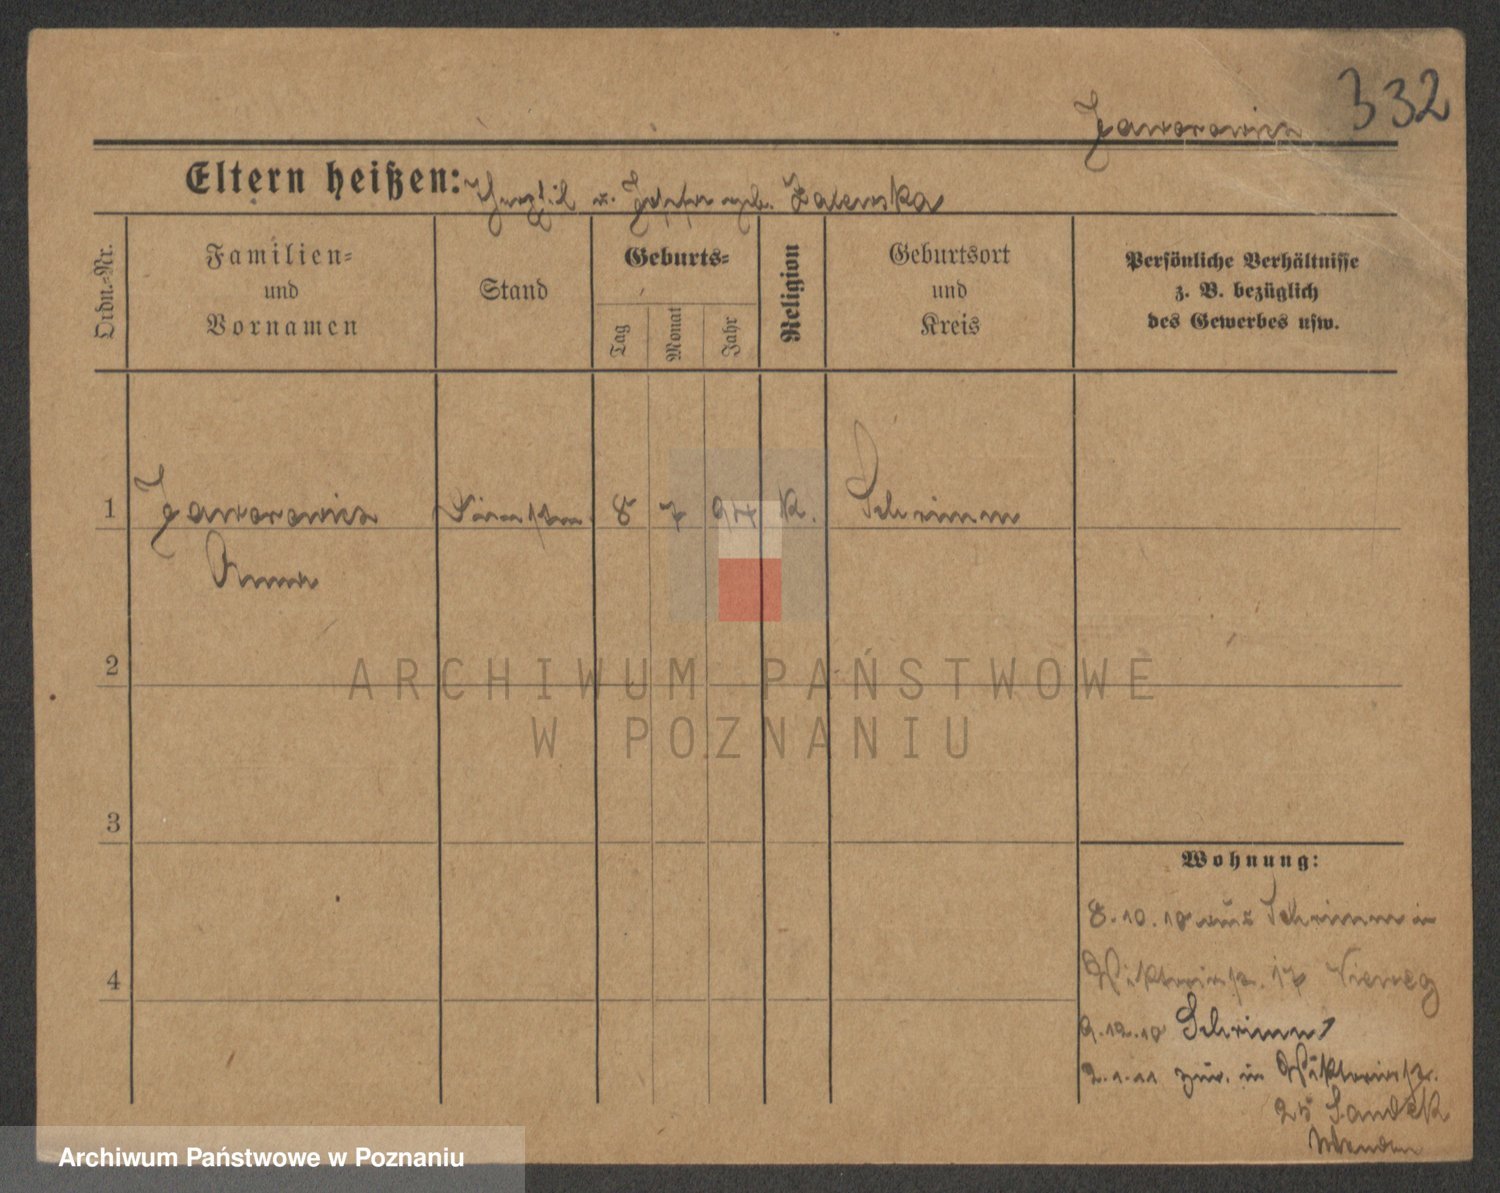 332
Jaworowicz
Eltern heißen: u. Josefa geb. Zalewska
Ordn.-Nr.
Familien-
und
Vornamen
Stand
Geburts-
Tag
Monat
Jahr
Religion
Geburtsort
und
Kreis
Persönliche Verhältnisse
z. B. bezüglich
des Gewerbes usw.
1 Jaworowicz 8 7 94 K. Schrimm
Anna
2
3
4
Wohnung:
8.10.10 aus Schrimm in
Viktoriastr. 17
9.12.10 Schrimm
2.1.11 zur. in Viktoriastr.
25
ARCHIWUM PAŃSTWOWE
W POZNANIU
Archiwum Państwowe w Poznaniu